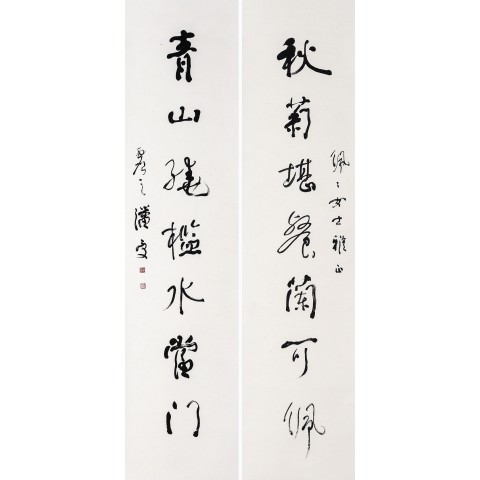 佩佩女士雅正
秋菊堪餐蘭可佩
青山繞檻水當门
虚之潘受